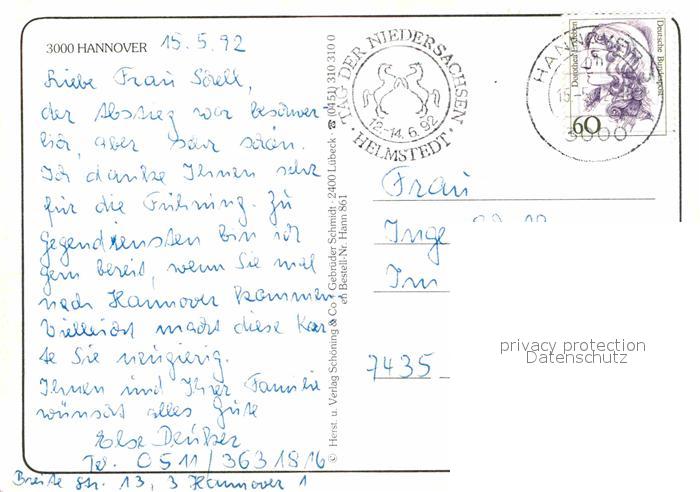 3000 HANNOVER 15.5.92
Liebe Frau
der Abstieg war beschwer-
lich, aber sehr schön.
Ich danke Ihnen sehr
für die Führung. Zu
Gegendiensten bin ich
gern bereit, wenn Sie mal
nach Hannover kommen.
Vielleicht macht diese Kar-
te Sie neugierig.
Ihnen und Ihrer Familie
wünscht alles Gute
Else
Tel. 0511/3631816
Breite Str. 13, 3 Hannover 1
© Herst. u. Verlag Schöning & Co · Gebrüder Schmidt · 2400 Lübeck · ☎ (0451) 310 310 0
Bestell-Nr. Hann 861
TAG DER NIEDERSACHSEN
12.-14.6.92
· HELMSTEDT ·
HANNOVER
3000
Deutsche Bundespost
60
Frau
Inge
Im
7435
privacy protection
Datenschutz